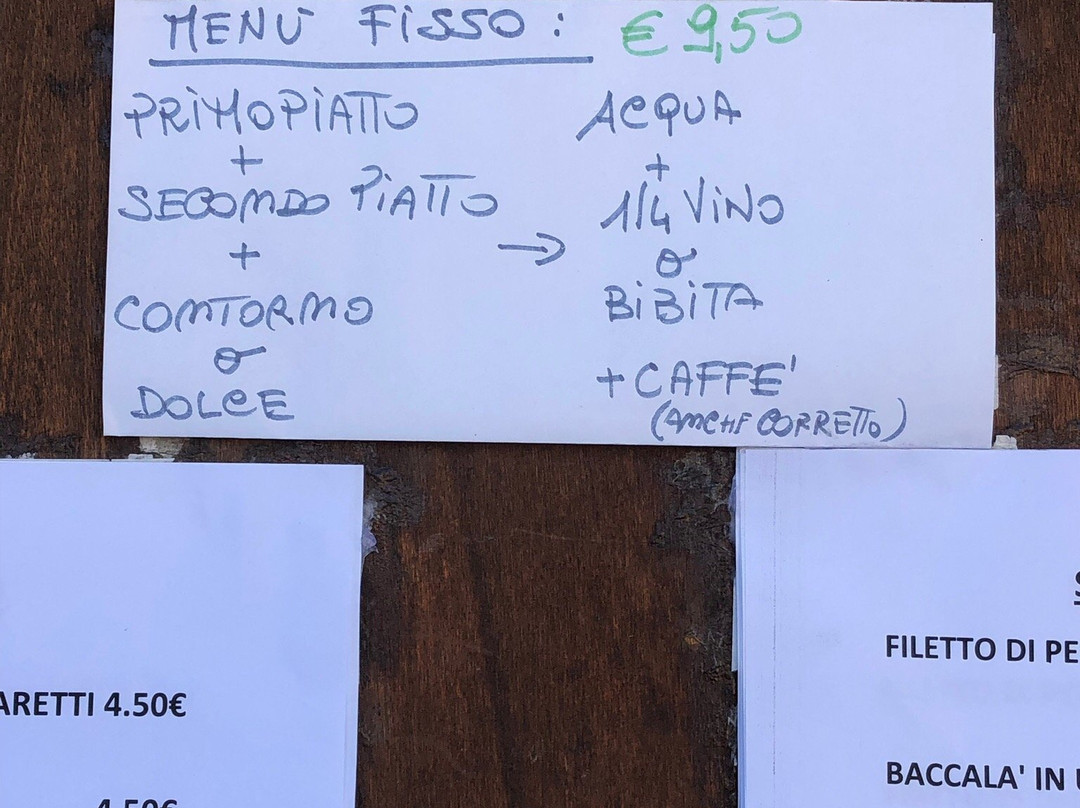 MENÙ FISSO: € 9,50
PRIMO PIATTO
+
SECONDO PIATTO
+
CONTORNO
o
DOLCE
→
ACQUA
+
1/4 VINO
o
BIBITA
+ CAFFE'
(ANCHE CORRETTO)
ARETTI 4.50€
4.50€
FILETTO DI PE
BACCALA' IN